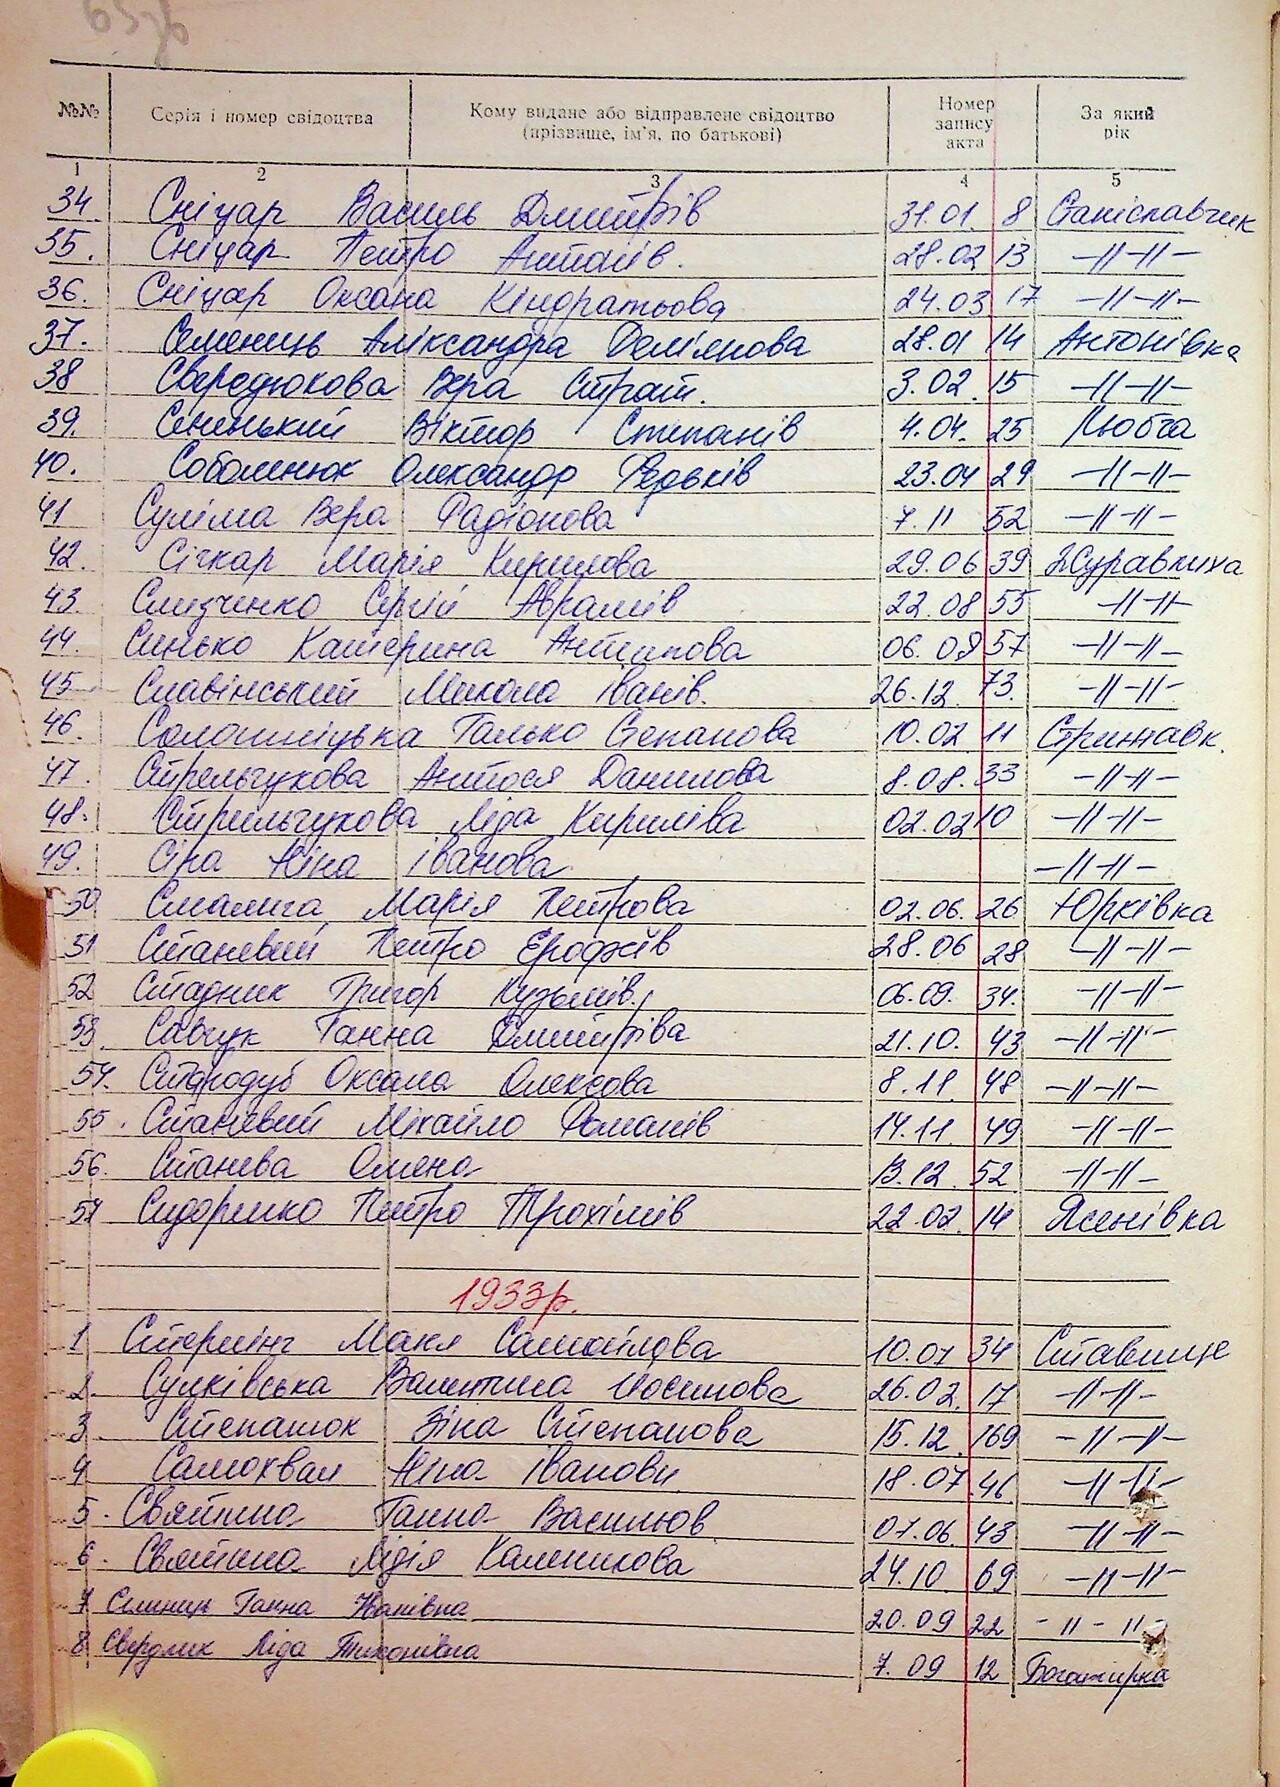 №№ Серія і номер свідоцтва Кому видане або відправлене свідоцтво (прізвище, ім'я, по батькові) Номер запису акта За який рік
1 2 3 4 5
34. Сніцар Василь Дмитрів 31.01 8 Станіславчик
35. Сніцар Петро Антонів. 28.02 13 -//-//-
36. Сніцар Оксана Кіндратьова 24.03 17 -//-//-
37. Семениць Аліксандра Демянова 28.01 14 Антонівка
38 Свєродюкова Вєра Страт. 3.02. 15 -//-//-
39. Сененький Віктор Степанів 4.04. 25 Любча
40. Соболенюк Олександр Федьків 23.04 29 -//-//-
41 Суліма Вєра Радіонова 7.11 52 -//-//-
42. Січкар Марія Кирилова 29.06 39 Журавлиха
43. Слизченко Сергій Аврамів 22.08 55 -//-//-
44. Синько Катерина Антипова 06.08 57 -//-//-
45 Славінський Микола Іванів. 26.12. 73. -//-//-
46. Солошніцька Галько Степанова 10.02 11 Стрижавк.
47. Стрельчукова Антося Данилова 8.08. 33 -//-//-
48. Стрельчукова Ліда Кирилівa 02.02 10 -//-//-
49. Сіра Ніна Іванова -//-//-
50 Смалига Марія Петрова 02.06. 26 Юрківка
51 Станевий Петро Єрофєїв 28.06 28 -//-//-
52 Стадник Григор Кузьмів. 06.09. 34. -//-//-
53. Савчук Ганна Дмитріва 21.10. 43 -//-//-
54. Стародуб Оксана Олексова 8.11 48 -//-//-
55. Станевий Міхайло Романів 14.11. 49 -//-//-
56. Станева Олена 13.12. 52 -//-//-
57 Сидоренко Петро Трохімів 22.02. 14 Ясенівка
1933р.
1 Стермінг Маня Самойлова 10.07 34 Ставище
2. Сулківська Валентина Йосипова 26.02. 17 -//-//-
3. Степанюк Зіна Степанова 15.12. 169 -//-//-
4 Самохвал Ніна Іванови 18.07. 46 -//-//-
5. Святина Ганна Васильов 07.06. 43 -//-//-
6. Святина Лідія Каленикова 24.10 69 -//-//-
7 Семиниць Ганна Іванівна 20.09 22 -//-//-
8 Свердлик Ліда Тихонівна 7.09 12 Богатирка